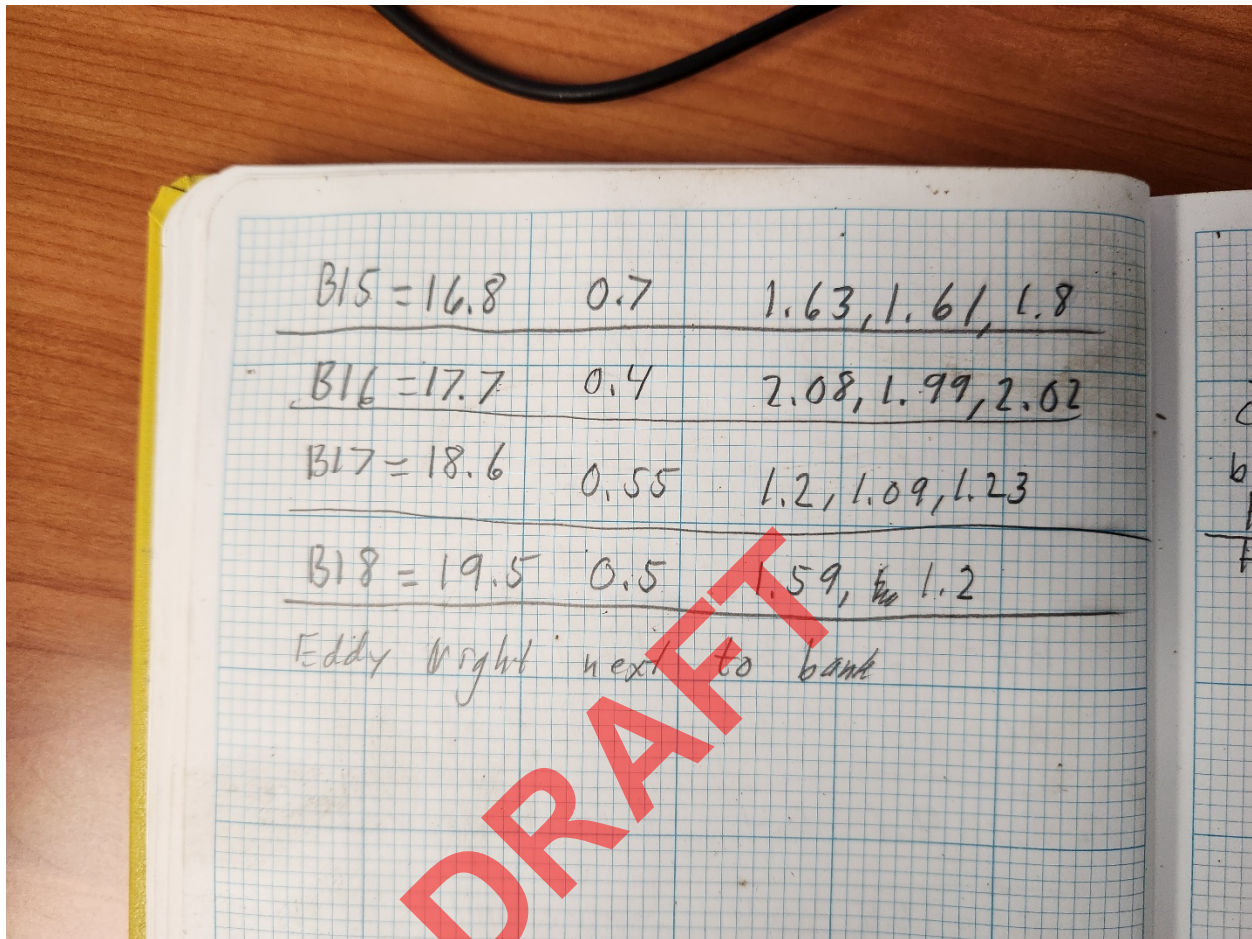 B15 = 16.8 0.7 1.63, 1.61, 1.8
B16 = 17.7 0.4 2.08, 1.99, 2.02
B17 = 18.6 0.55 1.2, 1.09, 1.23
B18 = 19.5 0.5 1.59, 1.2
Eddy right next to bank
DRAFT